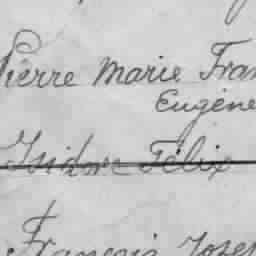 Pierre Marie Fran
Eugène
Isidore Félix
François Josep